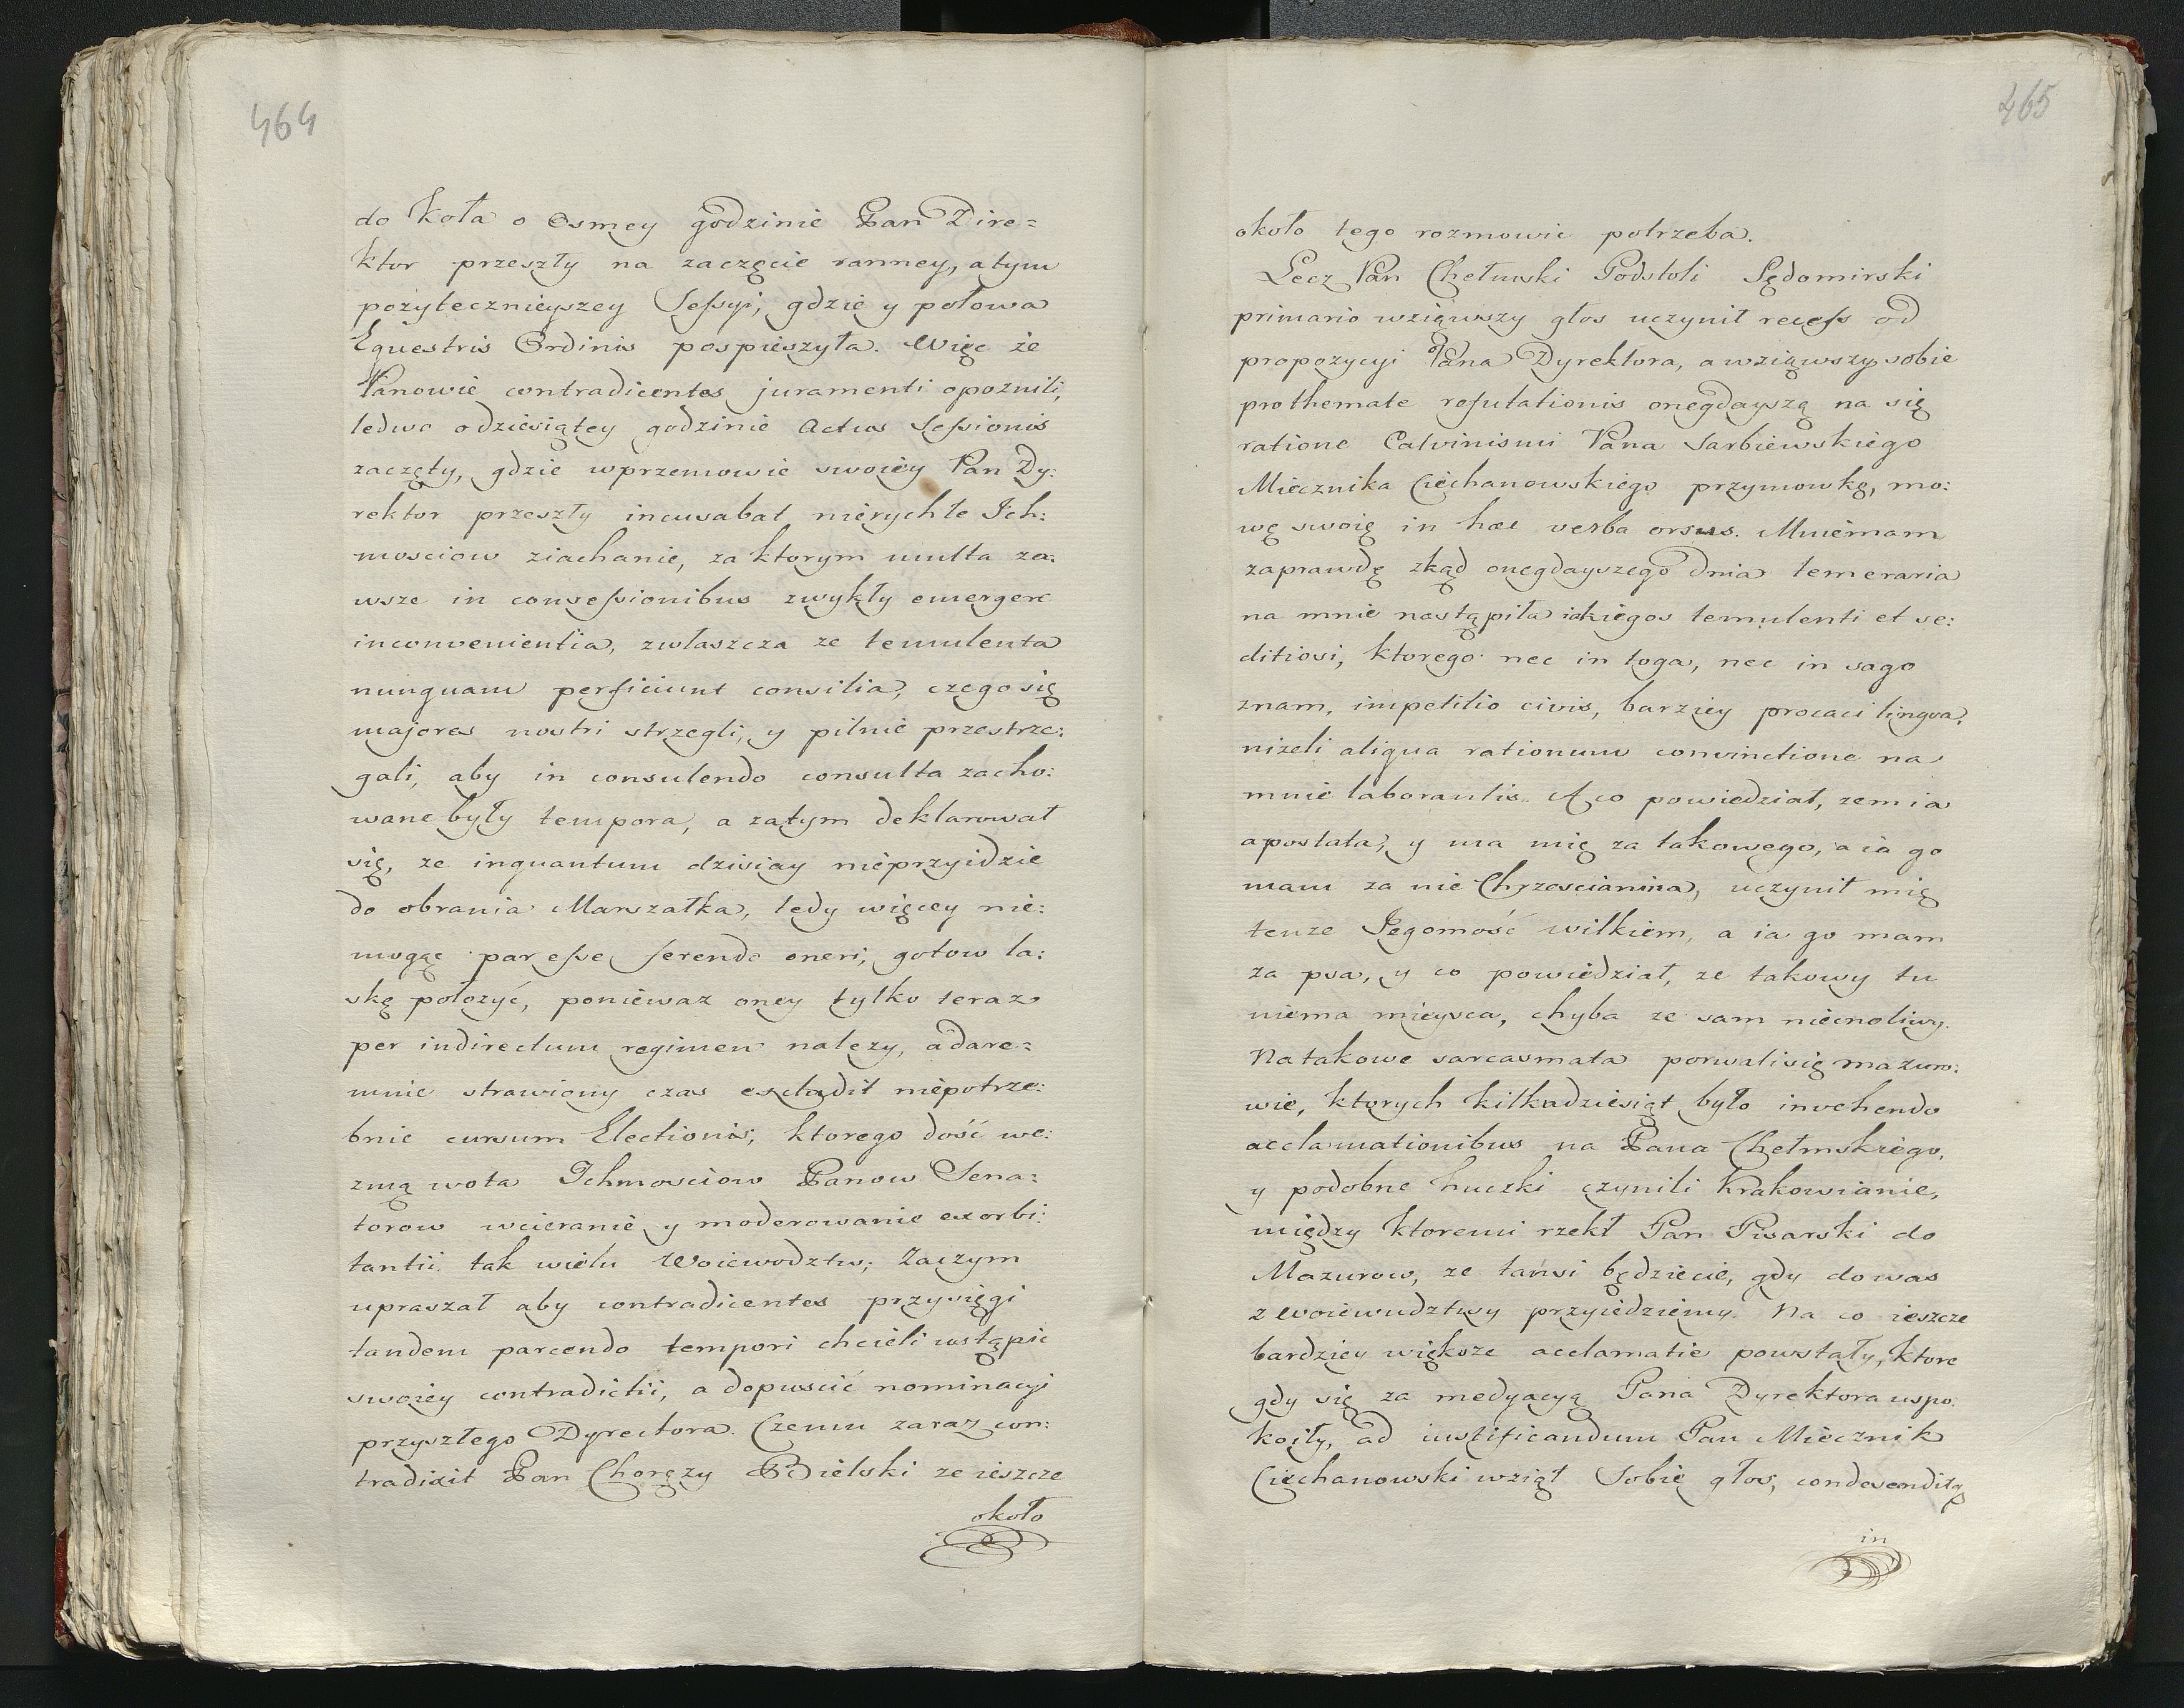 464
do Koła o osmey godzinie Pan Dire=
ktor przeszły na zaczęcie ranney, a tym
pozytecznieyszey Sessyi, gdzie y połowa
Equestris Ordinis pospieszyła. Więc że
Panowie contradicentes juramenti opoznili,
ledwo o dziesiątey godzinie Actus Sessionis
zaczęty, gdzie w przemowie swoiey Pan Dy:
rektor przeszły incusabat nierychłe Ich:
mosciow ziachanie, za ktorym multa za:
wsze in consessionibus zwykły emergere
inconvenientia, zwłaszcza ze temulenta
nunquam perficiunt consilia, czego się
majores nostri strzegli, y pilnie przestrze:
gali, aby in consulendo consulta zacho:
wane były tempora, a zatym deklarował
się, ze inquantum dzisiay nieprzyidzie
do obrania Marszałka, tedy więcey nie:
mogąc par esse ferendo oneri, gotow la:
skę położyć, poniewaz oney tylko teraz
per indirectum regimen nalezy, a dare=
mnie strawiony czas excludit niepotrze:
bnie cursum Electionis, ktorego dość we:
zmą wota Ichmosciow Panow Sena:
torow wcieranie y moderowanie exorbi:
tantii tak wielu Woiewodztw; Zaczym
upraszał aby contradicentes przysięgi
tandem parcendo tempori chcieli ustąpic
swoiey contradictii, a dopuscić nominacyi
przyszłego Dyrectora. Czemu zaraz con:
tradixit Pan Chorązy Bielski ze ieszcze
około
465
około tego rozmowic potrzeba.
Lecz Pan Chełmski Podstoli Sędomirski
primario wziąwszy głos uczynił recess od
propozycyi Pana Dyrektora, a wziąwszy sobie
pro themate refutationis onegdayszą na się
ratione Calvinismi Pana Sarbiewskiego
Miecznika Ciechanowskiego przymowkę, mo:
wę swoię in hæc verba orsus. Mniemam
zaprawdę zkąd onegdayszego dnia temeraria
na mnie nastąpiła iakiegos temulenti et se:
ditiosi, ktorego nec in toga, nec in sago
znam, impetitio civis, barziey procaci lingva,
nizeli aliqua rationum convinctione na
mnie laborantis. A co powiedział, zem ia
apostata, y ma mię za takowego, a ia go
mam za nie Chrzescianina, uczynił mię
tenze Jegomość wilkiem, a ia go mam
za psa, y co powiedział, ze takowy tu
niema mieysca, chyba ze sam niecnotliwy.
Na takowe sarcasmata porwali się mazuro:
wie, ktorych kilkadziesiąt było invehendo
acclamationibus na Pana Chełmskiego,
y podobne huczki czynili Krakowianie,
między ktoremi rzekł Pan Pisarski do
Mazurow, ze tańsi będziecie, gdy do was
z woiewudztwy przyiedziemy. Na co ieszcze
bardziey większe acclamatie powstały, ktore
gdy się za medyacyą Pana Dyrektora uspo:
koiły, ad iustificandum Pan Miecznik
Ciechanowski wziął Sobie głos, condescenditq
in